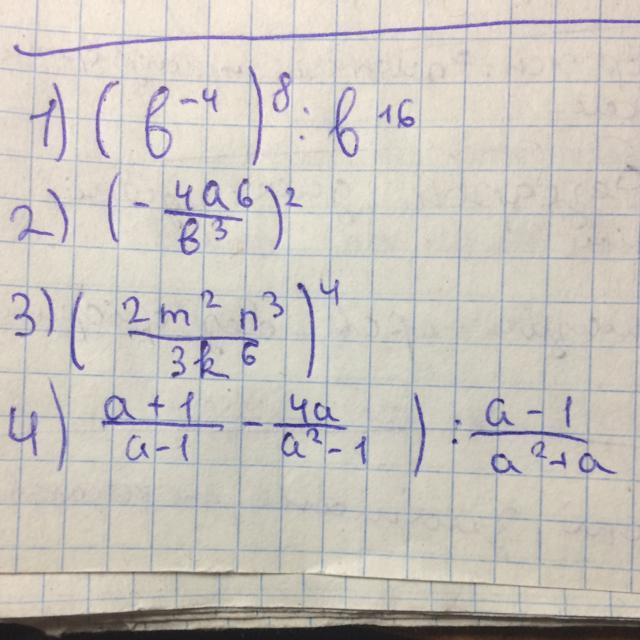 1) (b⁻⁴)⁸ : b¹⁶
2) (- 4a⁶/b³)²
3) (2m² n³/3k⁶)⁴
4) a+1/a-1 - 4a/a²-1) : a-1/a²+a